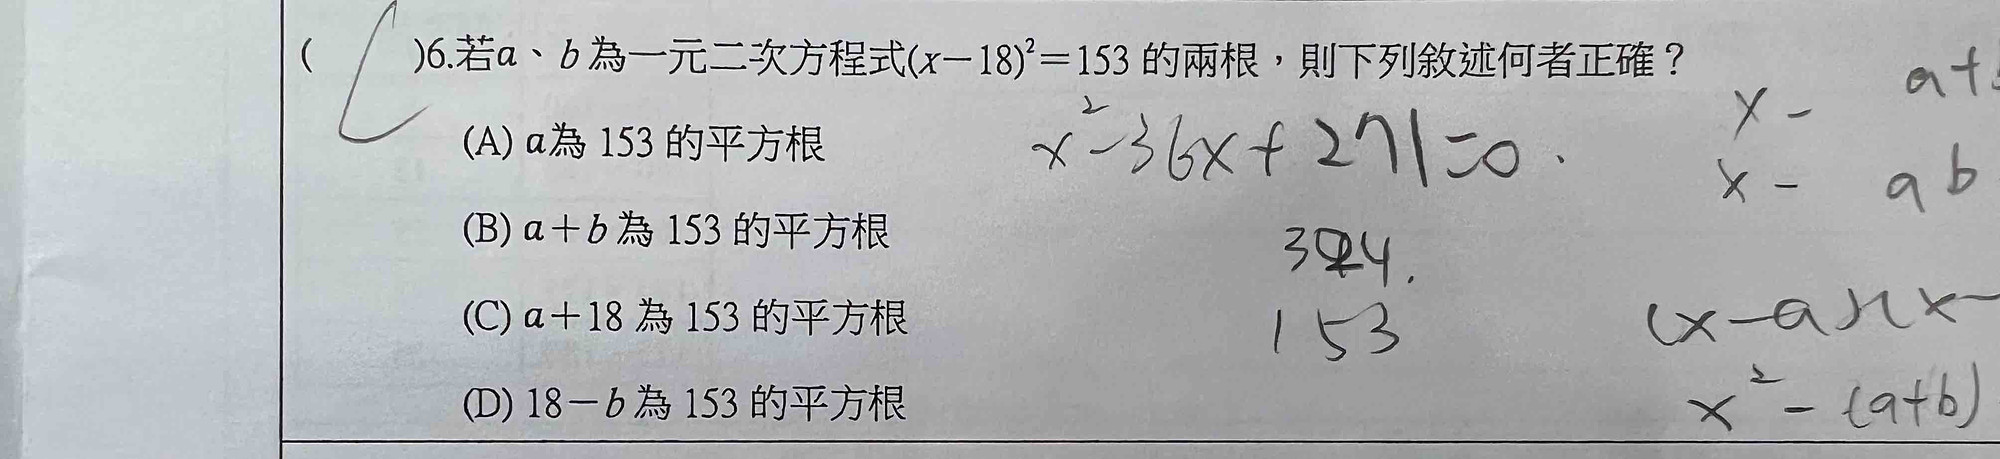 ( )6.若a、b為一元二次方程式(x－18)²＝153 的兩根，則下列敘述何者正確？
(A) a為 153 的平方根
(B) a＋b 為 153 的平方根
(C) a＋18 為 153 的平方根
(D) 18－b 為 153 的平方根
x²-36x+271=0
153
x- a+
x- ab
(x-a)(x-
x²-(a+b)